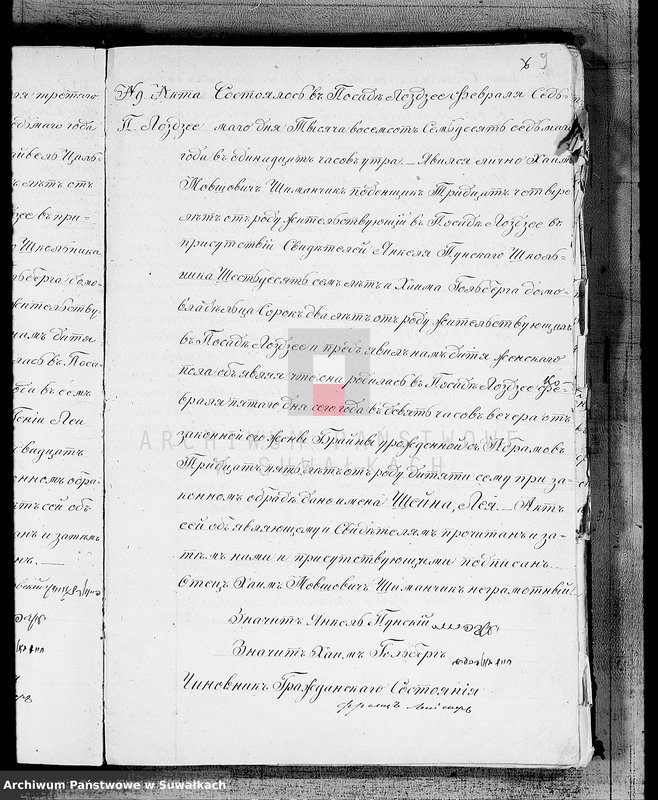 9
№ 9. Акта Состоялось въ Посадѣ Лоздзее Февраля Седь-
П. Лоздзее маго дня Тысяча восемсотъ Семьдесятъ седьмаго
года въ одинадцать часовъ утра. Явился лично Хаимъ
Мовшовичъ Шиманчикъ поденщикъ Тридцать четыре
лѣтъ отъ роду жительствующій въ Посадѣ Лоздзее въ
присутствіи Свидѣтелей Янкеля Пунскаго Школь-
ника Шестьдесятъ семь лѣтъ и Хаима Гольберга домо-
владѣльца Сорокъ два лѣтъ отъ роду жительствующихъ
въ Посадѣ Лоздзее и предъявилъ намъ дитя женскаго
пола объявляя что она родилась въ Посадѣ Лоздзее Фе-
враля пятаго дня сего года въ девять часовъ вечера отъ
законной его жены Брайны урожденной съ Абрамовъ
Тридцать пять лѣтъ отъ роду дитяти сему при за-
конномъ обрядѣ дано имена Шейна, Лея. Актъ
сей объявляющему и Свидѣтелямъ прочитанъ и за-
тѣмъ нами и присутствующими подписанъ
Отецъ Хаимъ Мовшовичъ Шиманчикъ неграмотный.
Значитъ Янкель Пунскій
Значитъ Хаимъ Гольбергъ
Чиновникъ Гражданскаго Состоянія
ARCHIWUM PAŃSTWOWE
W SUWAŁKACH
Archiwum Państwowe w Suwałkach